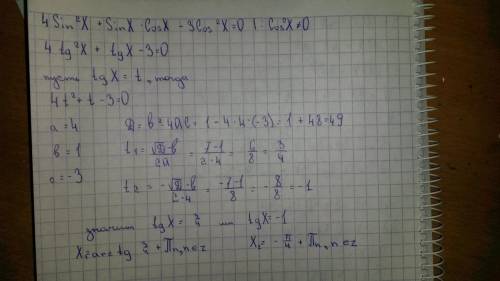 4 Sin²X + SinX · CosX - 3Cos²X=0 | : Cos²X≠0
4 tg²X + tgX - 3=0
пусть tgX = t, тогда
4t² + t - 3=0
a = 4 D = b² - 4ac = 1 - 4·4·(-3) = 1 + 48 = 49
b = 1 t₁ = (√D - b)/(2a) = (7-1)/(2·4) = 6/8 = 3/4
c = -3
t₂ = (-√D - b)/(2·4) = (-7-1)/8 = -8/8 = -1
значит tgX = 3/4 или tgX = -1
X₁ = arctg 3/4 + Πn, n∈z X₂ = -π/4 + Πn, n∈z